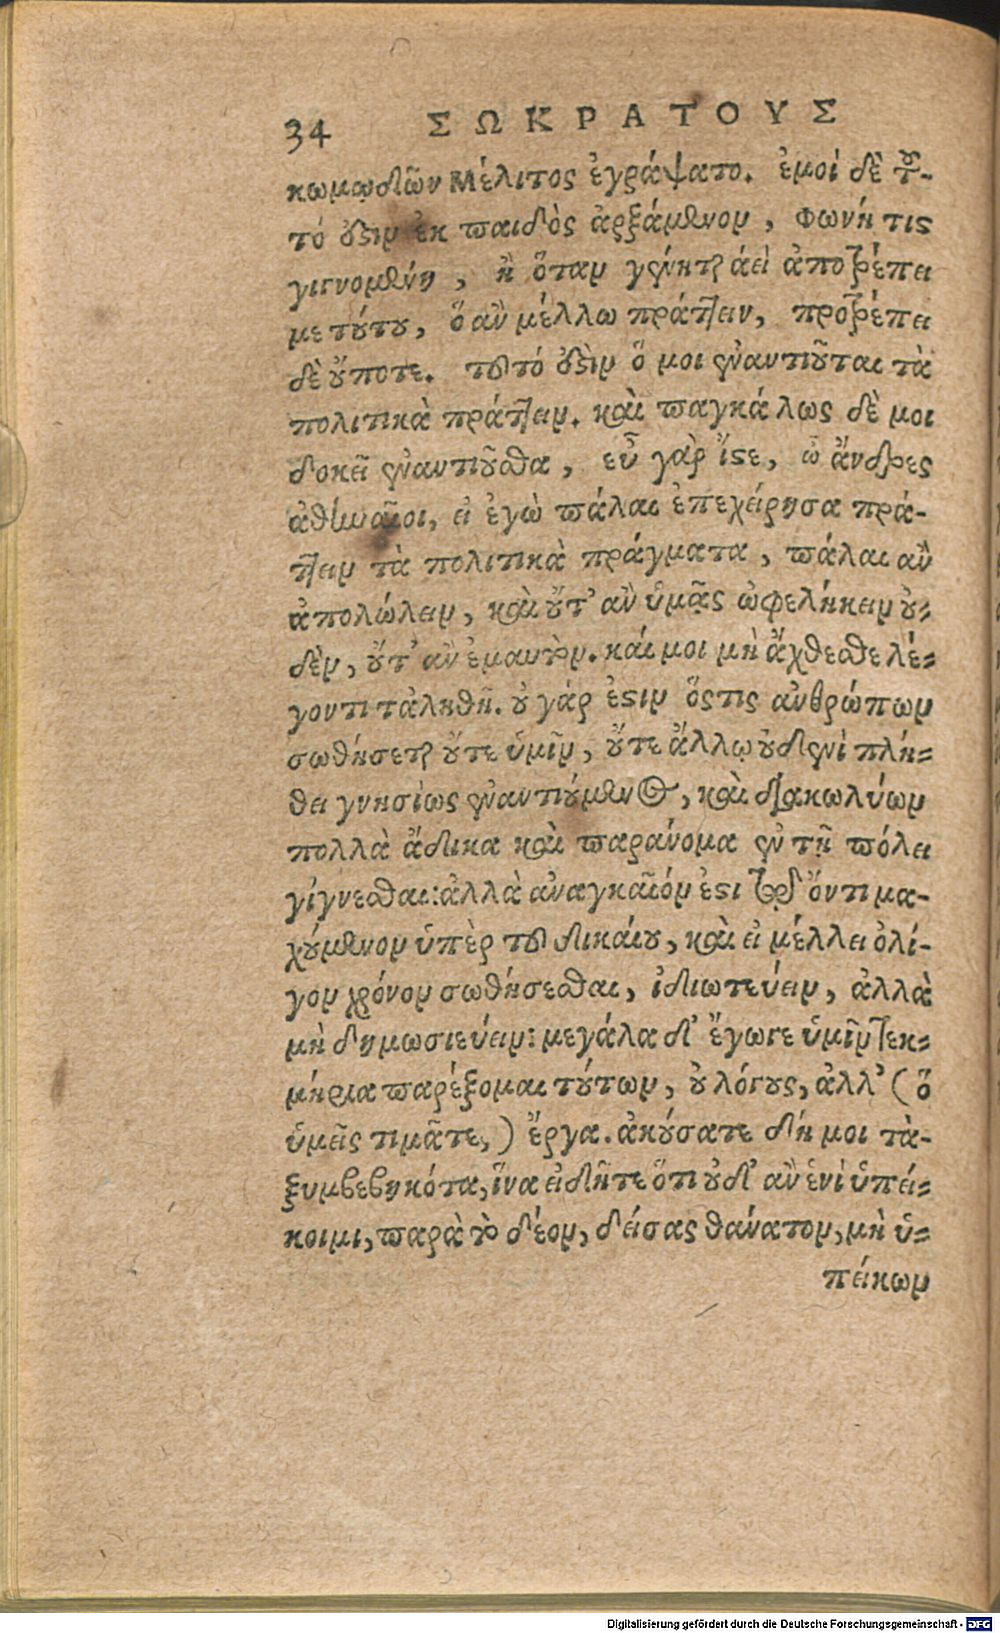 34 ΣΩΚΡΑΤΟΥΣ
κωμῳδιῶν Μέλιτος ἐγράψατο. ἐμοί δὲ τοῦ-
τό ἐστιν ἐκ παιδὸς ἀρξάμενον, φωνή τις
γιγνομένη, ἣ ὅταν γένηται ἀεὶ ἀποτρέπει
με τούτου, ὃ ἂν μέλλω πράττειν, προτρέπει
δὲ οὔποτε. τοῦτό ἐστιν ὅ μοι ἐναντιοῦται τὰ
πολιτικὰ πράττειν. καὶ παγκάλως δὲ μοι
δοκεῖ ἐναντιοῦσθαι, εὖ γὰρ ἴστε, ὦ ἄνδρες
ἀθηναῖοι, εἰ ἐγὼ πάλαι ἐπεχείρησα πρά-
ττειν τὰ πολιτικὰ πράγματα, πάλαι ἂν
ἀπολώλειν, καὶ οὔτ' ἂν ὑμᾶς ὠφελήκειν οὐ-
δὲν, οὔτ' ἂν ἐμαυτὸν. καί μοι μὴ ἄχθεσθε λέ-
γοντι τἀληθῆ. οὐ γάρ ἐστιν ὅστις ἀνθρώπων
σωθήσεται οὔτε ὑμῖν, οὔτε ἄλλῳ οὐδενὶ πλή-
θει γνησίως ἐναντιούμενος, καὶ διακωλύων
πολλὰ ἄδικα καὶ παράνομα ἐν τῇ πόλει
γίγνεσθαι: ἀλλὰ ἀναγκαῖόν ἐστι τῷ ὄντι μα-
χούμενον ὑπὲρ τοῦ δικαίου, καὶ εἰ μέλλει ὀλί-
γον χρόνον σωθήσεσθαι, ἰδιωτεύειν, ἀλλὰ
μὴ δημωσιεύειν: μεγάλα δ' ἔγωγε ὑμῖν τεκ-
μήρια παρέξομαι τούτων, οὐ λόγους, ἀλλ' (ὃ
ὑμεῖς τιμᾶτε,) ἔργα. ἀκούσατε δή μοι τὰ-
ξυμβεβηκότα, ἵνα εἰδῆτε ὅτι οὐδ' ἂν ἑνὶ ὑπεί-
κοιμι, παρὰ τὸ δέον, δείσας θάνατον, μὴ ὑ-
πείκων
Digitalisierung gefördert durch die Deutsche Forschungsgemeinschaft - DFG